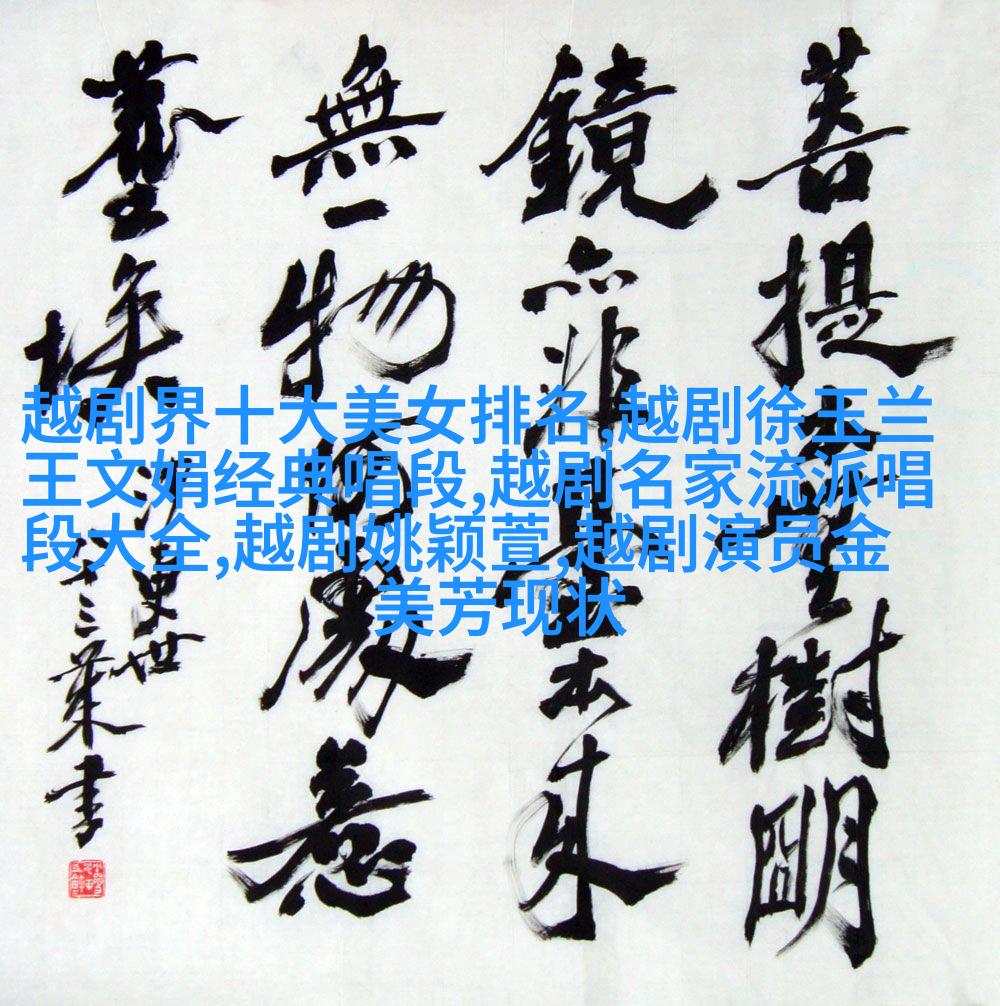 菩提本無樹明
鏡亦非臺本来
無一物何處惹
塵埃
沙更世
八十三葉書
越剧界十大美女排名,越剧徐玉兰
王文娟经典唱段,越剧名家流派唱
段大全,越剧姚颖萱,越剧演员金
美芳现状